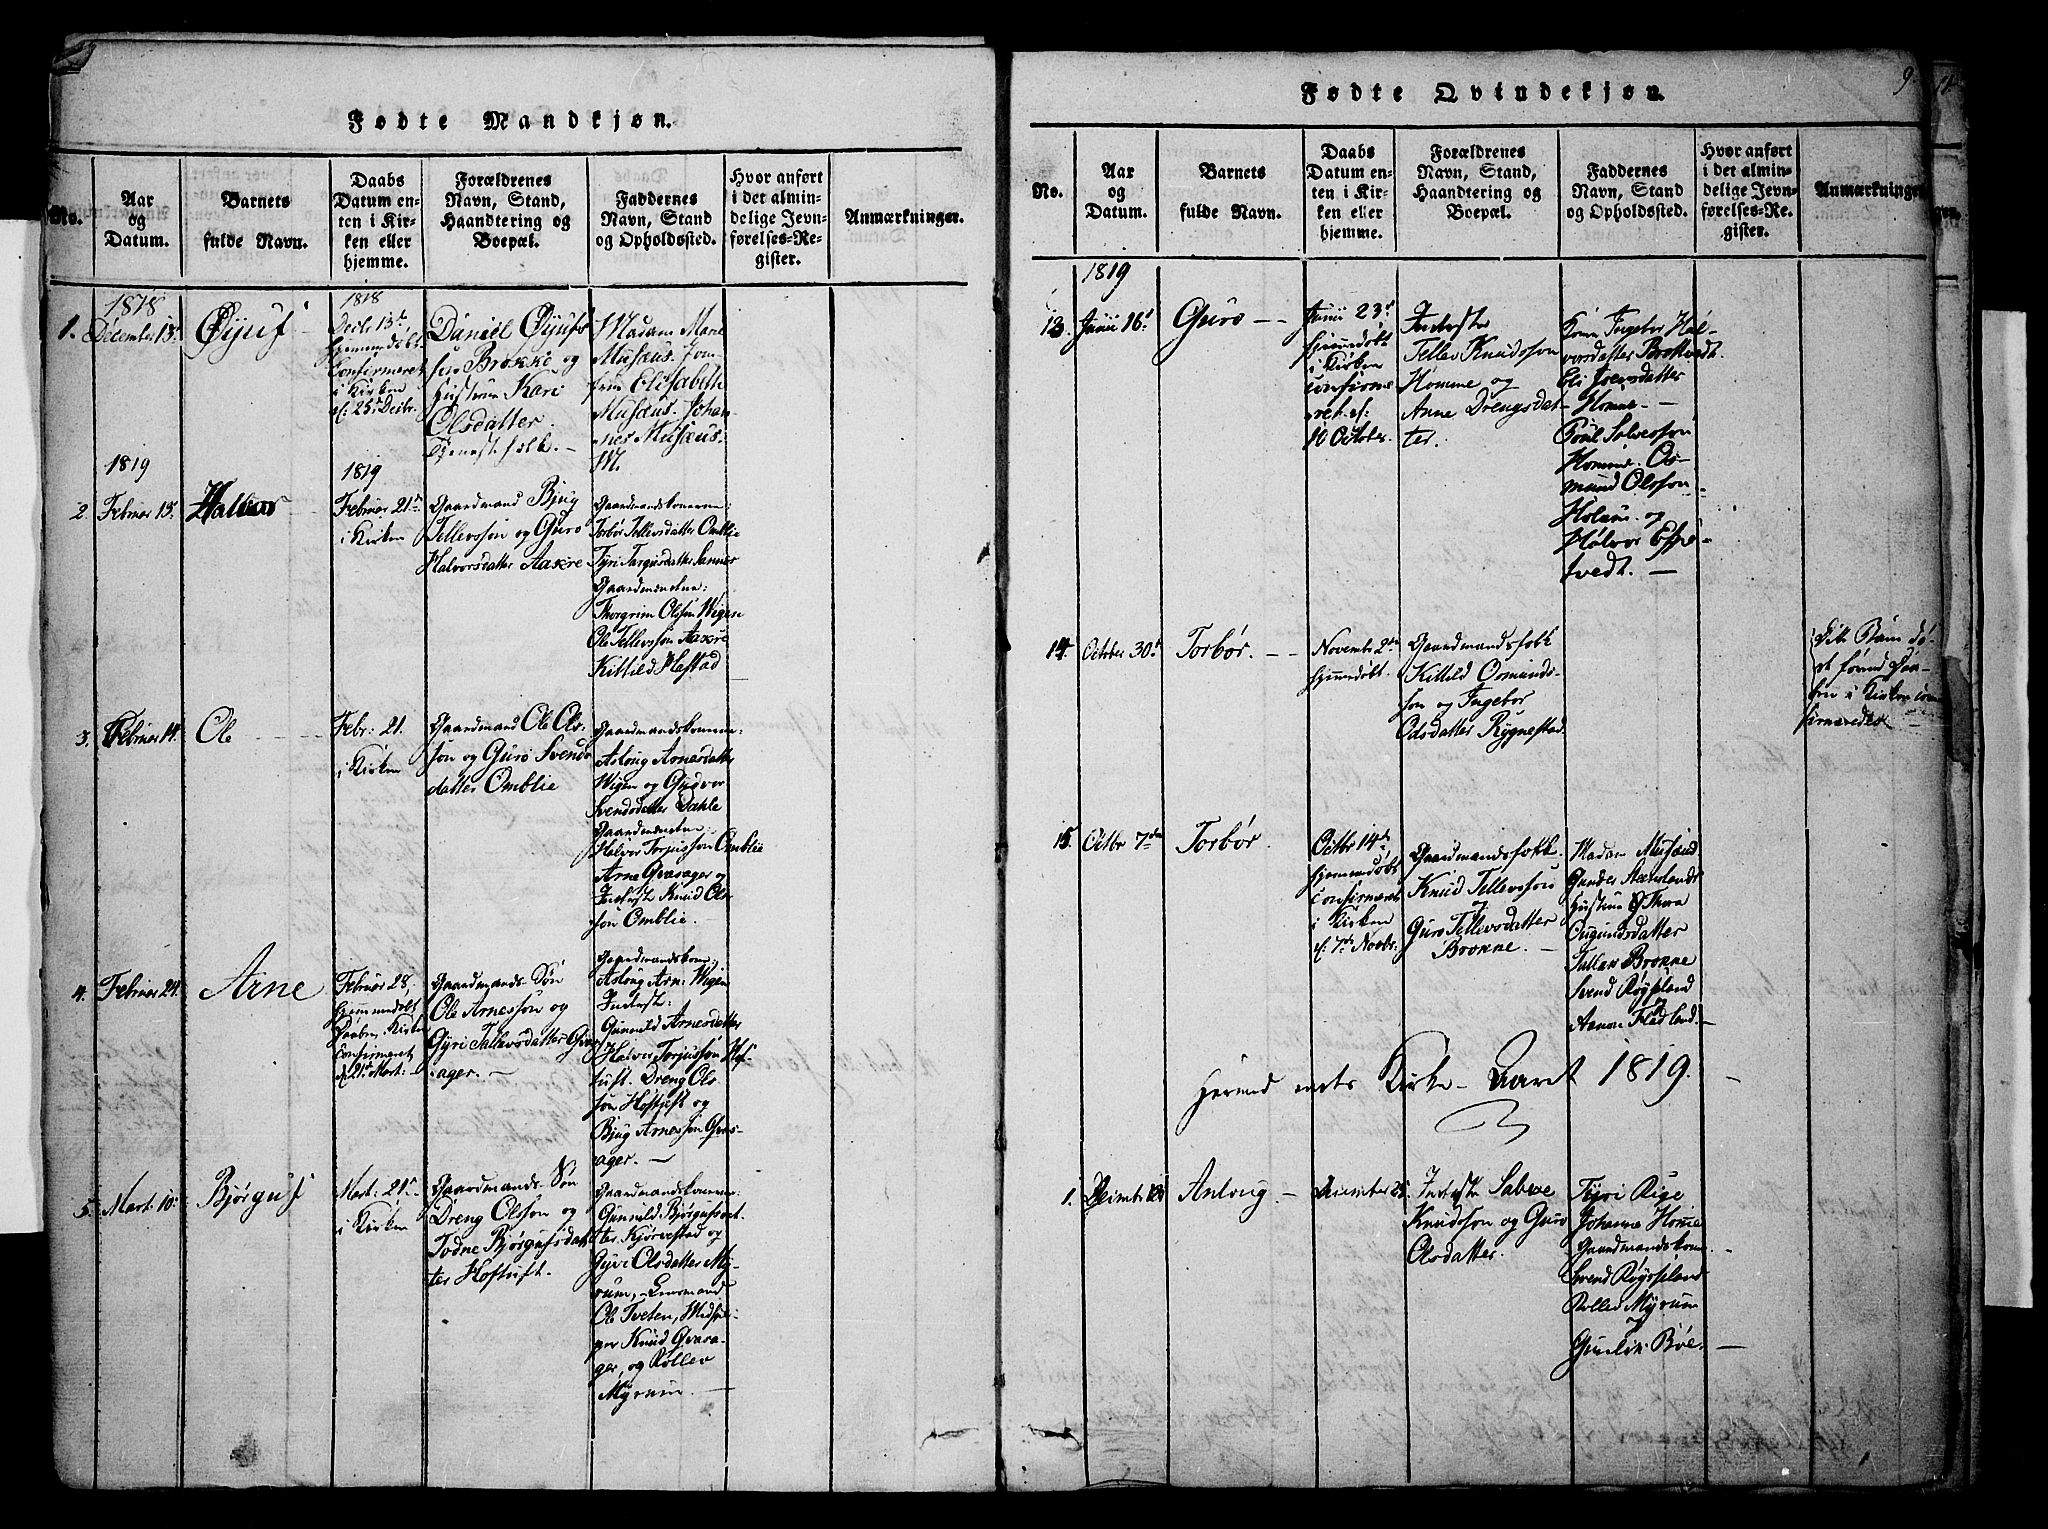 Fødte Mandkjøn.
No.
Aar
og
Datum.
Barnets
fulde Navn.
Daabs
Datum en-
ten i Kir-
ken eller
hjemme.
Forældrenes
Navn, Stand,
Haandtering og
Boepæl.
Faddernes
Navn, Stand
og Opholdssted.
Hvor anført
i det almin-
delige Jevn-
førelses-Re-
gister.
Anmærkninger.
1.
1818
December 13.
Øyuf
1818
Decbr 13de
hjemmedøbt
Confirmeret
i Kirken
d. 25de Decbr.
Daniel Øyufs
søn Brokke og
hustrue Kari
Olsdatter.
Tjenestfolk. —
Madam Marie
Musæus. Jom-
frue Elisabeth
Musæus. Johan-
nes Musæus.
M.
1819
2.
Februar 13.
Halvor
1819
Februar 21de
i Kirken
Gaardmand Bjug
Tellevssøn og Guro
Halvorsdatter Aakre
Gaardmandskonerne:
Torbør Tellevsdatter Omblie
Tyri Targusdatter Sannes
Gaardmændene:
Thorgrim Olssøn Wigen
Ole Tellevssøn Aakre
Kittild Hastad
3.
Februar 14.
Ole
Febr: 21.
i Kirken
Gaardmand Ole Ols-
søn og Guro Svends-
datter Omblie
Gaardmandskonerne:
Asloug Arnesdatter
Wigen og Gudvor
Svendsdatter Dahle
Gaardmændene
Halvor Torjussøn Omblie
Arne Qvasager og
Inderst Knud Ols-
søn Omblie.
4.
Februar 24.
Arne
Februar 28,
hjemmedøbt
Daaben i Kirken
Confirmeret
d. 21de Mart: —
Gaardmands Søn
Ole Arnessøn og
Gyri Tallevsdatter Qvas-
ager. —
Gaardmandskone,
Asloug Arn: Wigen
Inderst:
Gunnild Arnesdatter
Halvor Torjussøn Hof-
tuft. Dreng Ols-
søn Hoftuft og
Bjug Arnessøn Qvas-
ager. —
5.
Mart: 10.
Bjørguf
Mart: 21de
i Kirken
Gaardmands Søn
Dreng Olssøn og
Todne Bjørgufsdat-
ter Hoftuft.
Gaardmandskonerne:
Gunnild Bjørgufsdat-
ter Kjørvestad og
Gyri Olsdatter My-
rum, Lensmand
Ole Tveten, Medhjel-
per Knud Qvasa-
ger, og Rollev
Myrum. —
9
Fødte Qvindekjøn.
No.
Aar
og
Datum.
Barnets
fulde Navn.
Daabs
Datum en-
ten i Kir-
ken eller
hjemme.
Forældrenes
Navn, Stand,
Haandtering og
Boepæl.
Faddernes
Navn, Stand
og Opholdssted.
Hvor anført
i det almin-
delige Jevn-
førelses-Re-
gister.
Anmærkninger
1819
13.
Junii 16d
Guro —
Junii 23d
hjemmedøbt
i Kirken
confirme
ret d:
10 October.
Inderster
Tellev Knudssøn
Homme og
Anne Drengsdat-
ter.
Kone Ingebor Hal-
vorsdatter Brottvedt.
Eli Iversdatter
Homme —
Povl Salvessøn
Homme. Os-
mund Olssøn
Holum. og
Halvor Espe-
tvedt. —
14.
October 30d
Torbør. —
November 2den
hjemmedøbt.
Gaardmandsfolk
Kittild Osmunds-
søn og Ingebor
Odsdatter Rygnestad.
Dette Barn dø-
de førend Daa-
ben i Kirken con-
firmeredes
15.
Octbr 7de
Torbør.
Octbr 14de
hjemmedøbt
confirmeret
i Kirken
d. 7de Novbr.
Gaardmandsfolk.
Knud Tellevssøn
og
Guro Tellevsdatter
Brokke. —
Madam Musæus
Gunder
hustrue & Thora
Ougundsdatter
Tallev Brokke
Svend Røysland
og
Aanon Fladland. —
Kirke- Aaret 1819. —
1.
December
Anloug —
December 25.
Inderste Salve
Knudssøn og Guro
Olsdatter.
Tyri Rige
Johanne Homme
Gaardmandskone
Svend Røysland
Rollev Myrum
og
Gunlik Bøe. —